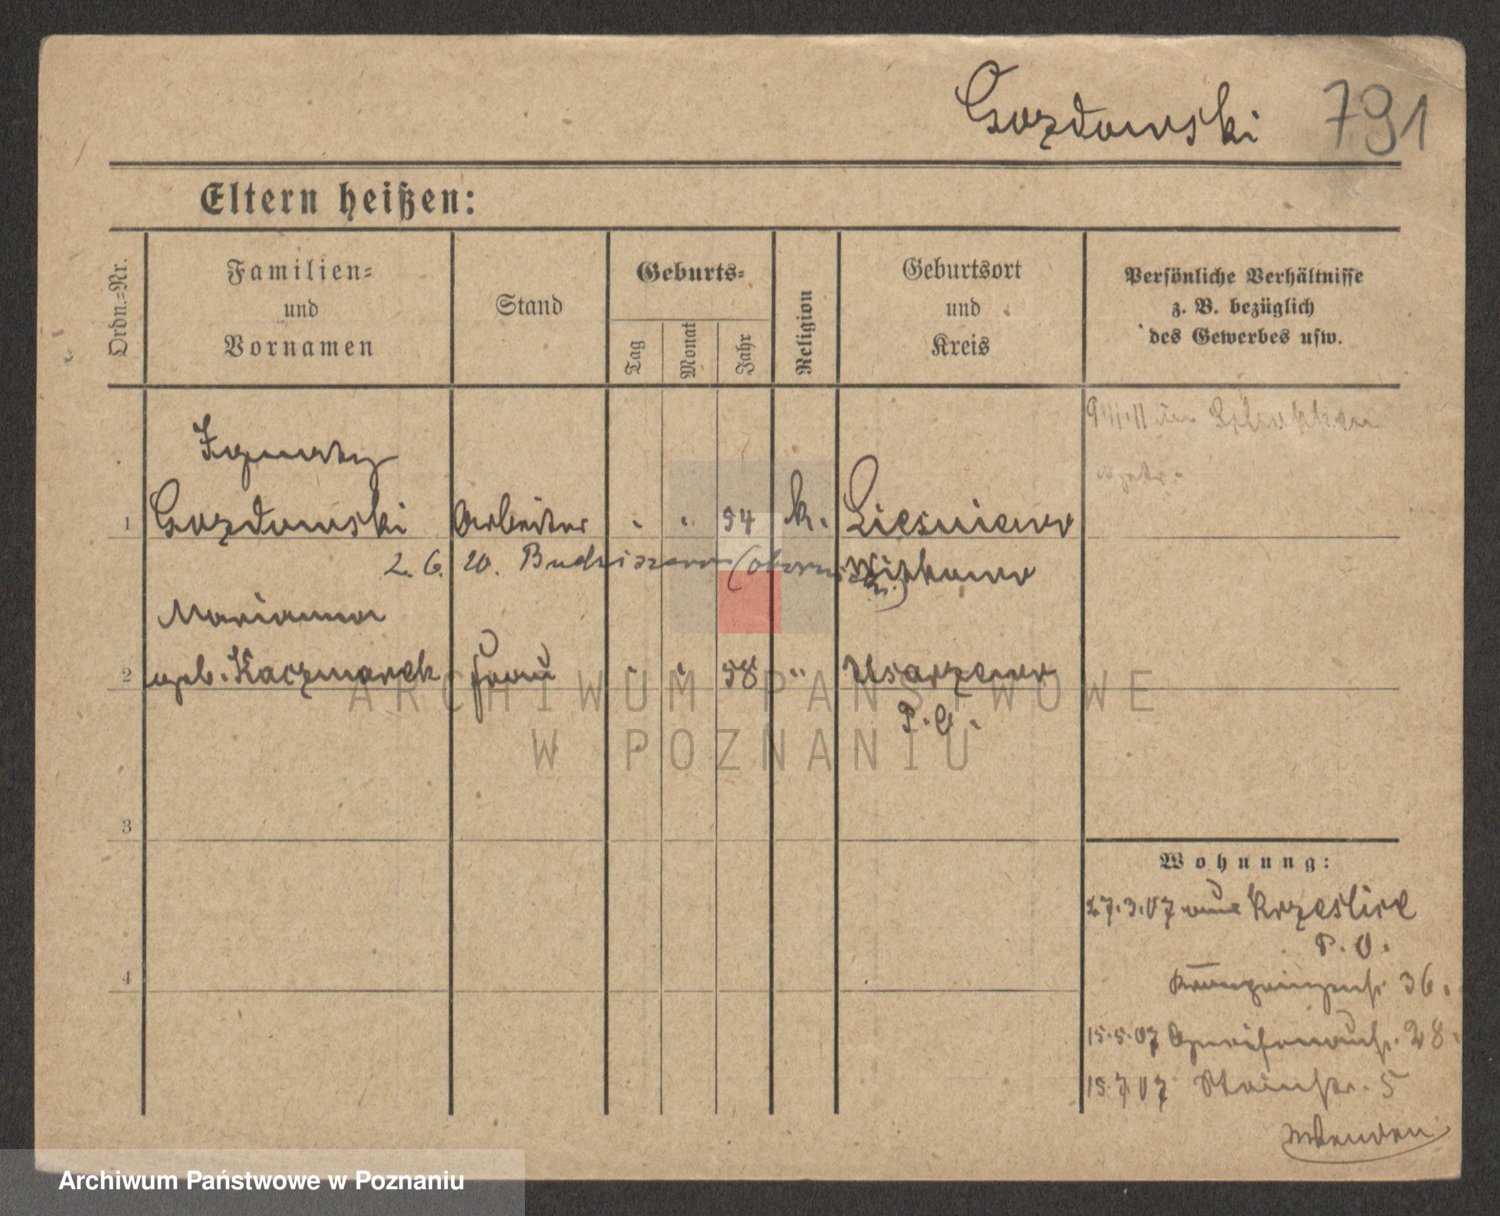 Gozdowski 791
Eltern heißen:
Ordn.=Nr.
Familien=
und
Vornamen
Stand
Geburts=
Tag
Monat
Jahr
Religion
Geburtsort
und
Kreis
Persönliche Verhältnisse
z. B. bezüglich
des Gewerbes usw.
Ignatz
1 Gozdowski Arbeiter " " 54 k. Liesniewo
2. 6. 20. Budziszewo (Obornik)
Witkowo
Marianna
2 geb. Kaczmarek Frau " " 58 " Usarzewo
P. O.
3
4
Wohnung:
27.3.07 aus Krzeslice
P. O.
Kronprinzenstr. 36.
15.5.07 Gneisenaustr. 28.
15.7.07 Steinstr. 5
Wenden
ARCHIWUM PAŃSTWOWE
W POZNANIU
Archiwum Państwowe w Poznaniu